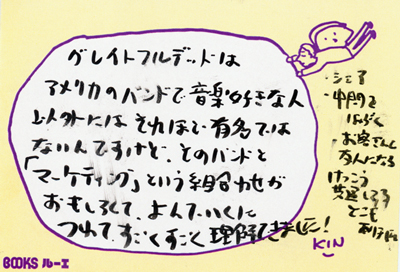 グレイトフルデッドは
アメリカのバンドで音楽好きな人
以外には それほど有名では
ないんですけど、そのバンドと
「マーケティング」という組合わせが
おもしろくて、よんでいくに
つれて、すごくすごく理解できました!
KIN
・シェア
・中間を
はぶく
お客さんと
友人になる
けっこう
共通してる
とこも
あります
BOOKS ルーエ